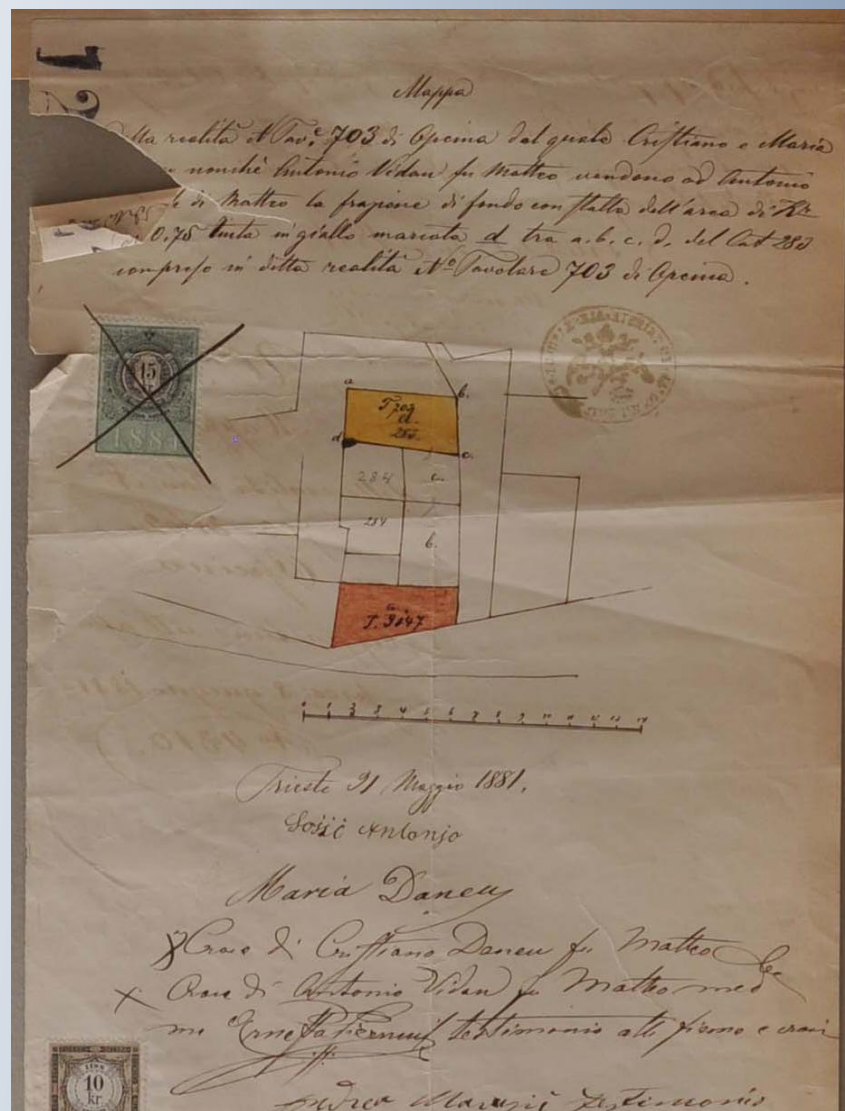 Mappa
della realità N Tav.e 703 di Opcina dal quale Cristiano e Maria
nonché Antonio Vidau fu Matteo vendono ad Antonio
di Matteo la frazione di fondo con stalla dell'area di Kr
0,75 tinta in giallo marcata d tra a. b. c. d. del Cat 283
compreso in detta realità No Tavolare 703 di Opcina.
15
1881
a
b.
T 703
d.
283.
d
c.
284
c.
284
b.
a.
T. 3147
Trieste 31 Maggio 1881.
Sosič Antonjo
Maria Daneu
Croce di Cristiano Daneu fu Matteo
X Croce di Antonio Vidau fu Matteo
testimonio alle firme e croci
Andrea testimonio
10
Kr